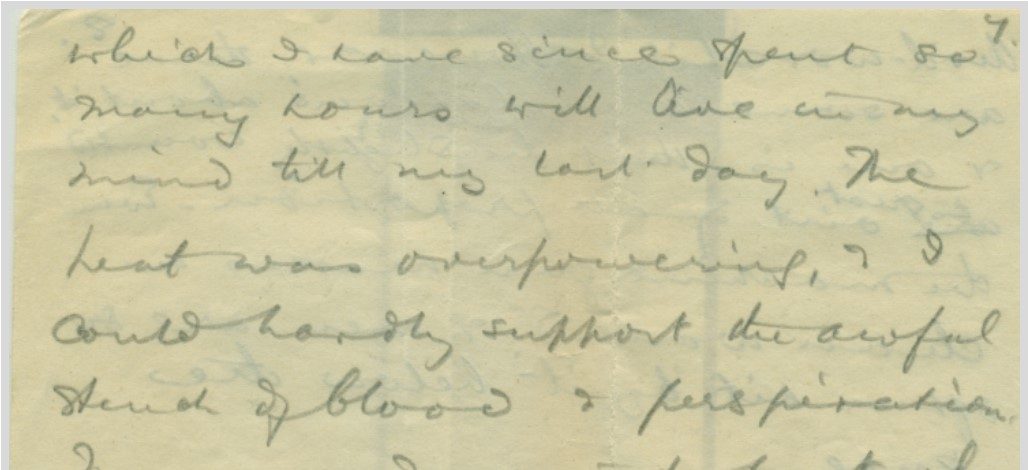 7.
which I have since spent so
many hours will live in my
mind till my last day. The
heat was overpowering, & I
could hardly support the awful
stench of blood & perspiration.